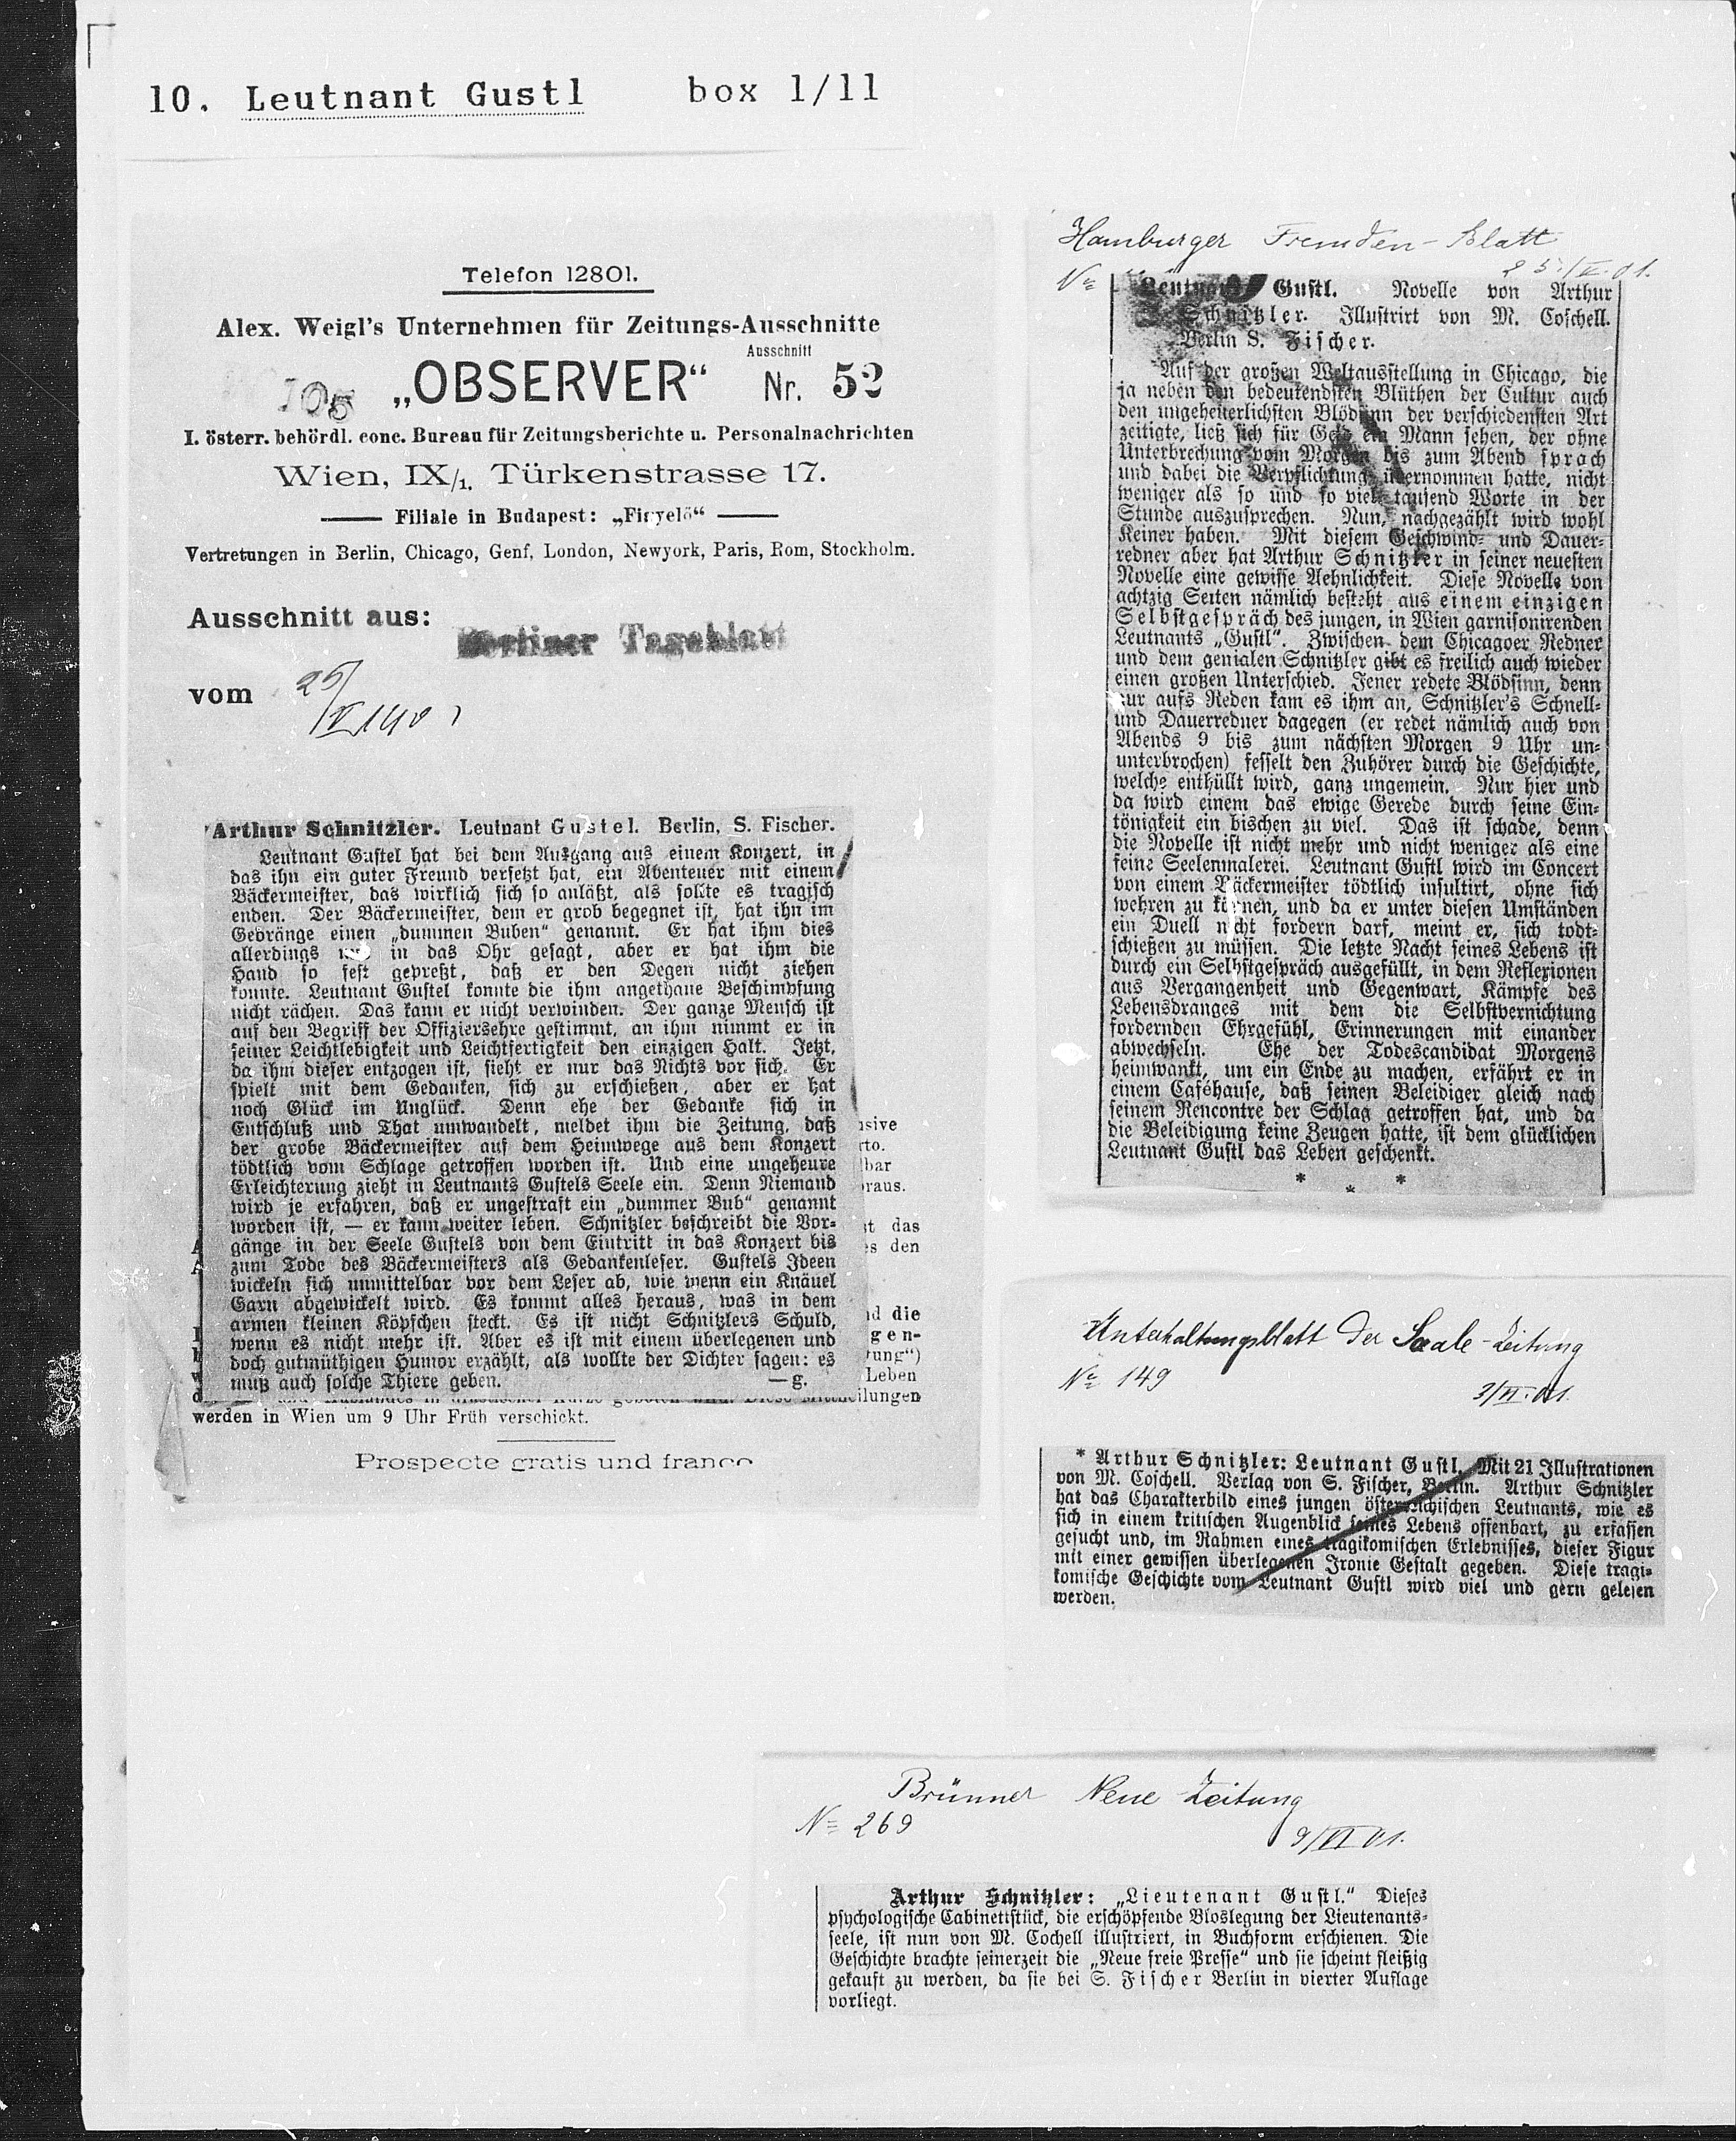 10. Leutnant Gustl box 1/11
Telefon 12801.
Alex. Weigl's Unternehmen für Zeitungs-Ausschnitte
Ausschnitt
105 „OBSERVER“ Nr. 52
I. österr. behördl. conc. Bureau für Zeitungsberichte u. Personalnachrichten
Wien, IX/1. Türkenstrasse 17.
Filiale in Budapest: „Figyelő“
Vertretungen in Berlin, Chicago, Genf, London, Newyork, Paris, Rom, Stockholm.
Ausschnitt aus: Berliner Tageblatt
vom 25/
/V 1901
Arthur Schnitzler. Leutnant Gustel. Berlin, S. Fischer.
Leutnant Gustel hat bei dem Ausgang aus einem Konzert, in
das ihn ein guter Freund versetzt hat, ein Abenteuer mit einem
Bäckermeister, das wirklich sich so anläßt, als sollte es tragisch
enden. Der Bäckermeister, dem er grob begegnet ist, hat ihn im
Gedränge einen „dummen Buben“ genannt. Er hat ihm dies
allerdings in das Ohr gesagt, aber er hat ihm die
Hand so fest gepreßt, daß er den Degen nicht ziehen
konnte. Leutnant Gustel konnte die ihm angethane Beschimpfung
nicht rächen. Das kann er nicht verwinden. Der ganze Mensch ist
auf den Begriff der Offiziersehre gestimmt, an ihm nimmt er in
seiner Leichtlebigkeit und Leichtfertigkeit den einzigen Halt. Jetzt,
da ihm dieser entzogen ist, sieht er nur das Nichts vor sich. Er
spielt mit dem Gedanken, sich zu erschießen, aber er hat
noch Glück im Unglück. Denn ehe der Gedanke sich in
Entschluß und That umwandelt, meldet ihm die Zeitung, daß
der grobe Bäckermeister auf dem Heimwege aus dem Konzert
tödtlich vom Schlage getroffen worden ist. Und eine ungeheure
Erleichterung zieht in Leutnants Gustels Seele ein. Denn Niemand
wird je erfahren, daß er ungestraft ein „dummer Bub“ genannt
worden ist, — er kann weiter leben. Schnitzler beschreibt die Vor-
gänge in der Seele Gustels von dem Eintritt in das Konzert bis
zum Tode des Bäckermeisters als Gedankenleser. Gustels Ideen
wickeln sich unmittelbar vor dem Leser ab, wie wenn ein Knäuel
Garn abgewickelt wird. Es kommt alles heraus, was in dem
armen kleinen Köpfchen steckt. Es ist nicht Schnitzlers Schuld,
wenn es nicht mehr ist. Aber es ist mit einem überlegenen und
doch gutmüthigen Humor erzählt, als wollte der Dichter sagen: es
muß auch solche Thiere geben. —g.
rto.
bar
raus.
das
den
die
gen-
tung“)
Leben
werden in Wien um 9 Uhr Früh verschickt.
Prospecte gratis und franco
Hamburger Fremden-Blatt
25./V.01.
No
Leutnant Gustl. Novelle von Arthur
Schnitzler. Illustrirt von M. Coschell.
Berlin S. Fischer.
Auf der großen Weltausstellung in Chicago, die
ja neben den bedeutendsten Blüthen der Cultur auch
den ungeheuerlichsten Blödsinn der verschiedensten Art
zeitigte, ließ sich für Geld ein Mann sehen, der ohne
Unterbrechung vom Morgen bis zum Abend sprach
und dabei die Verpflichtung übernommen hatte, nicht
weniger als so und so viel tausend Worte in der
Stunde auszusprechen. Nun, nachgezählt wird wohl
Keiner haben. Mit diesem Geschwind- und Dauer-
redner aber hat Arthur Schnitzler in seiner neuesten
Novelle eine gewisse Aehnlichkeit. Diese Novelle von
achtzig Seiten nämlich besteht aus einem einzigen
Selbstgespräch des jungen, in Wien garnisonirenden
Leutnants „Gustl“. Zwischen dem Chicagoer Redner
und dem genialen Schnitzler gibt es freilich auch wieder
einen großen Unterschied. Jener redete Blödsinn, denn
nur aufs Reden kam es ihm an, Schnitzler's Schnell-
und Dauerredner dagegen (er redet nämlich auch von
Abends 9 bis zum nächsten Morgen 9 Uhr un-
unterbrochen) fesselt den Zuhörer durch die Geschichte,
welche enthüllt wird, ganz ungemein. Nur hier und
da wird einem das ewige Gerede durch seine Ein-
tönigkeit ein bischen zu viel. Das ist schade, denn
die Novelle ist nicht mehr und nicht weniger als eine
feine Seelenmalerei. Leutnant Gustl wird im Concert
von einem Bäckermeister tödtlich insultirt, ohne sich
wehren zu können, und da er unter diesen Umständen
ein Duell nicht fordern darf, meint er, sich todt-
schießen zu müssen. Die letzte Nacht seines Lebens ist
durch ein Selbstgespräch ausgefüllt, in dem Reflexionen
aus Vergangenheit und Gegenwart, Kämpfe des
Lebensdranges mit dem die Selbstvernichtung
fordernden Ehrgefühl, Erinnerungen mit einander
abwechseln. Ehe der Todescandidat Morgens
heimwankt, um ein Ende zu machen, erfährt er in
einem Caféhause, daß seinen Beleidiger gleich nach
seinem Rencontre der Schlag getroffen hat, und da
die Beleidigung keine Zeugen hatte, ist dem glücklichen
Leutnant Gustl das Leben geschenkt.
* * *
Unterhaltungsblatt der Saale-Zeitung
No 149
/VI.01.
* Arthur Schnitzler: Leutnant Gustl. Mit 21 Illustrationen
von M. Coschell. Verlag von S. Fischer, Berlin. Arthur Schnitzler
hat das Charakterbild eines jungen österreichischen Leutnants, wie es
sich in einem kritischen Augenblick seines Lebens offenbart, zu erfassen
gesucht und, im Rahmen eines tragikomischen Erlebnisses, dieser Figur
mit einer gewissen überlegenen Ironie Gestalt gegeben. Diese tragi-
komische Geschichte vom Leutnant Gustl wird viel und gern gelesen
werden.
Brünner Neue Zeitung
No 269
9/VI 01.
Arthur Schnitzler: „Lieutenant Gustl.“ Dieses
psychologische Cabinettstück, die erschöpfende Bloslegung der Lieutenants-
seele, ist nun von M. Cochell illustriert, in Buchform erschienen. Die
Geschichte brachte seinerzeit die „Neue freie Presse“ und sie scheint fleißig
gekauft zu werden, da sie bei S. Fischer Berlin in vierter Auflage
vorliegt.